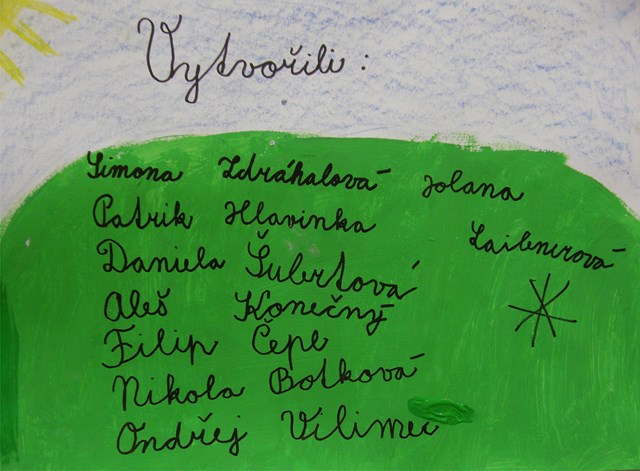 Vytvořili:
Simona Zdráhalová Jolana
Patrik Hlavinka
Laibnerová
Daniela Šubertová
Aleš Konečný
Filip Čepl
Nikola Botková
Ondřej Vilimec